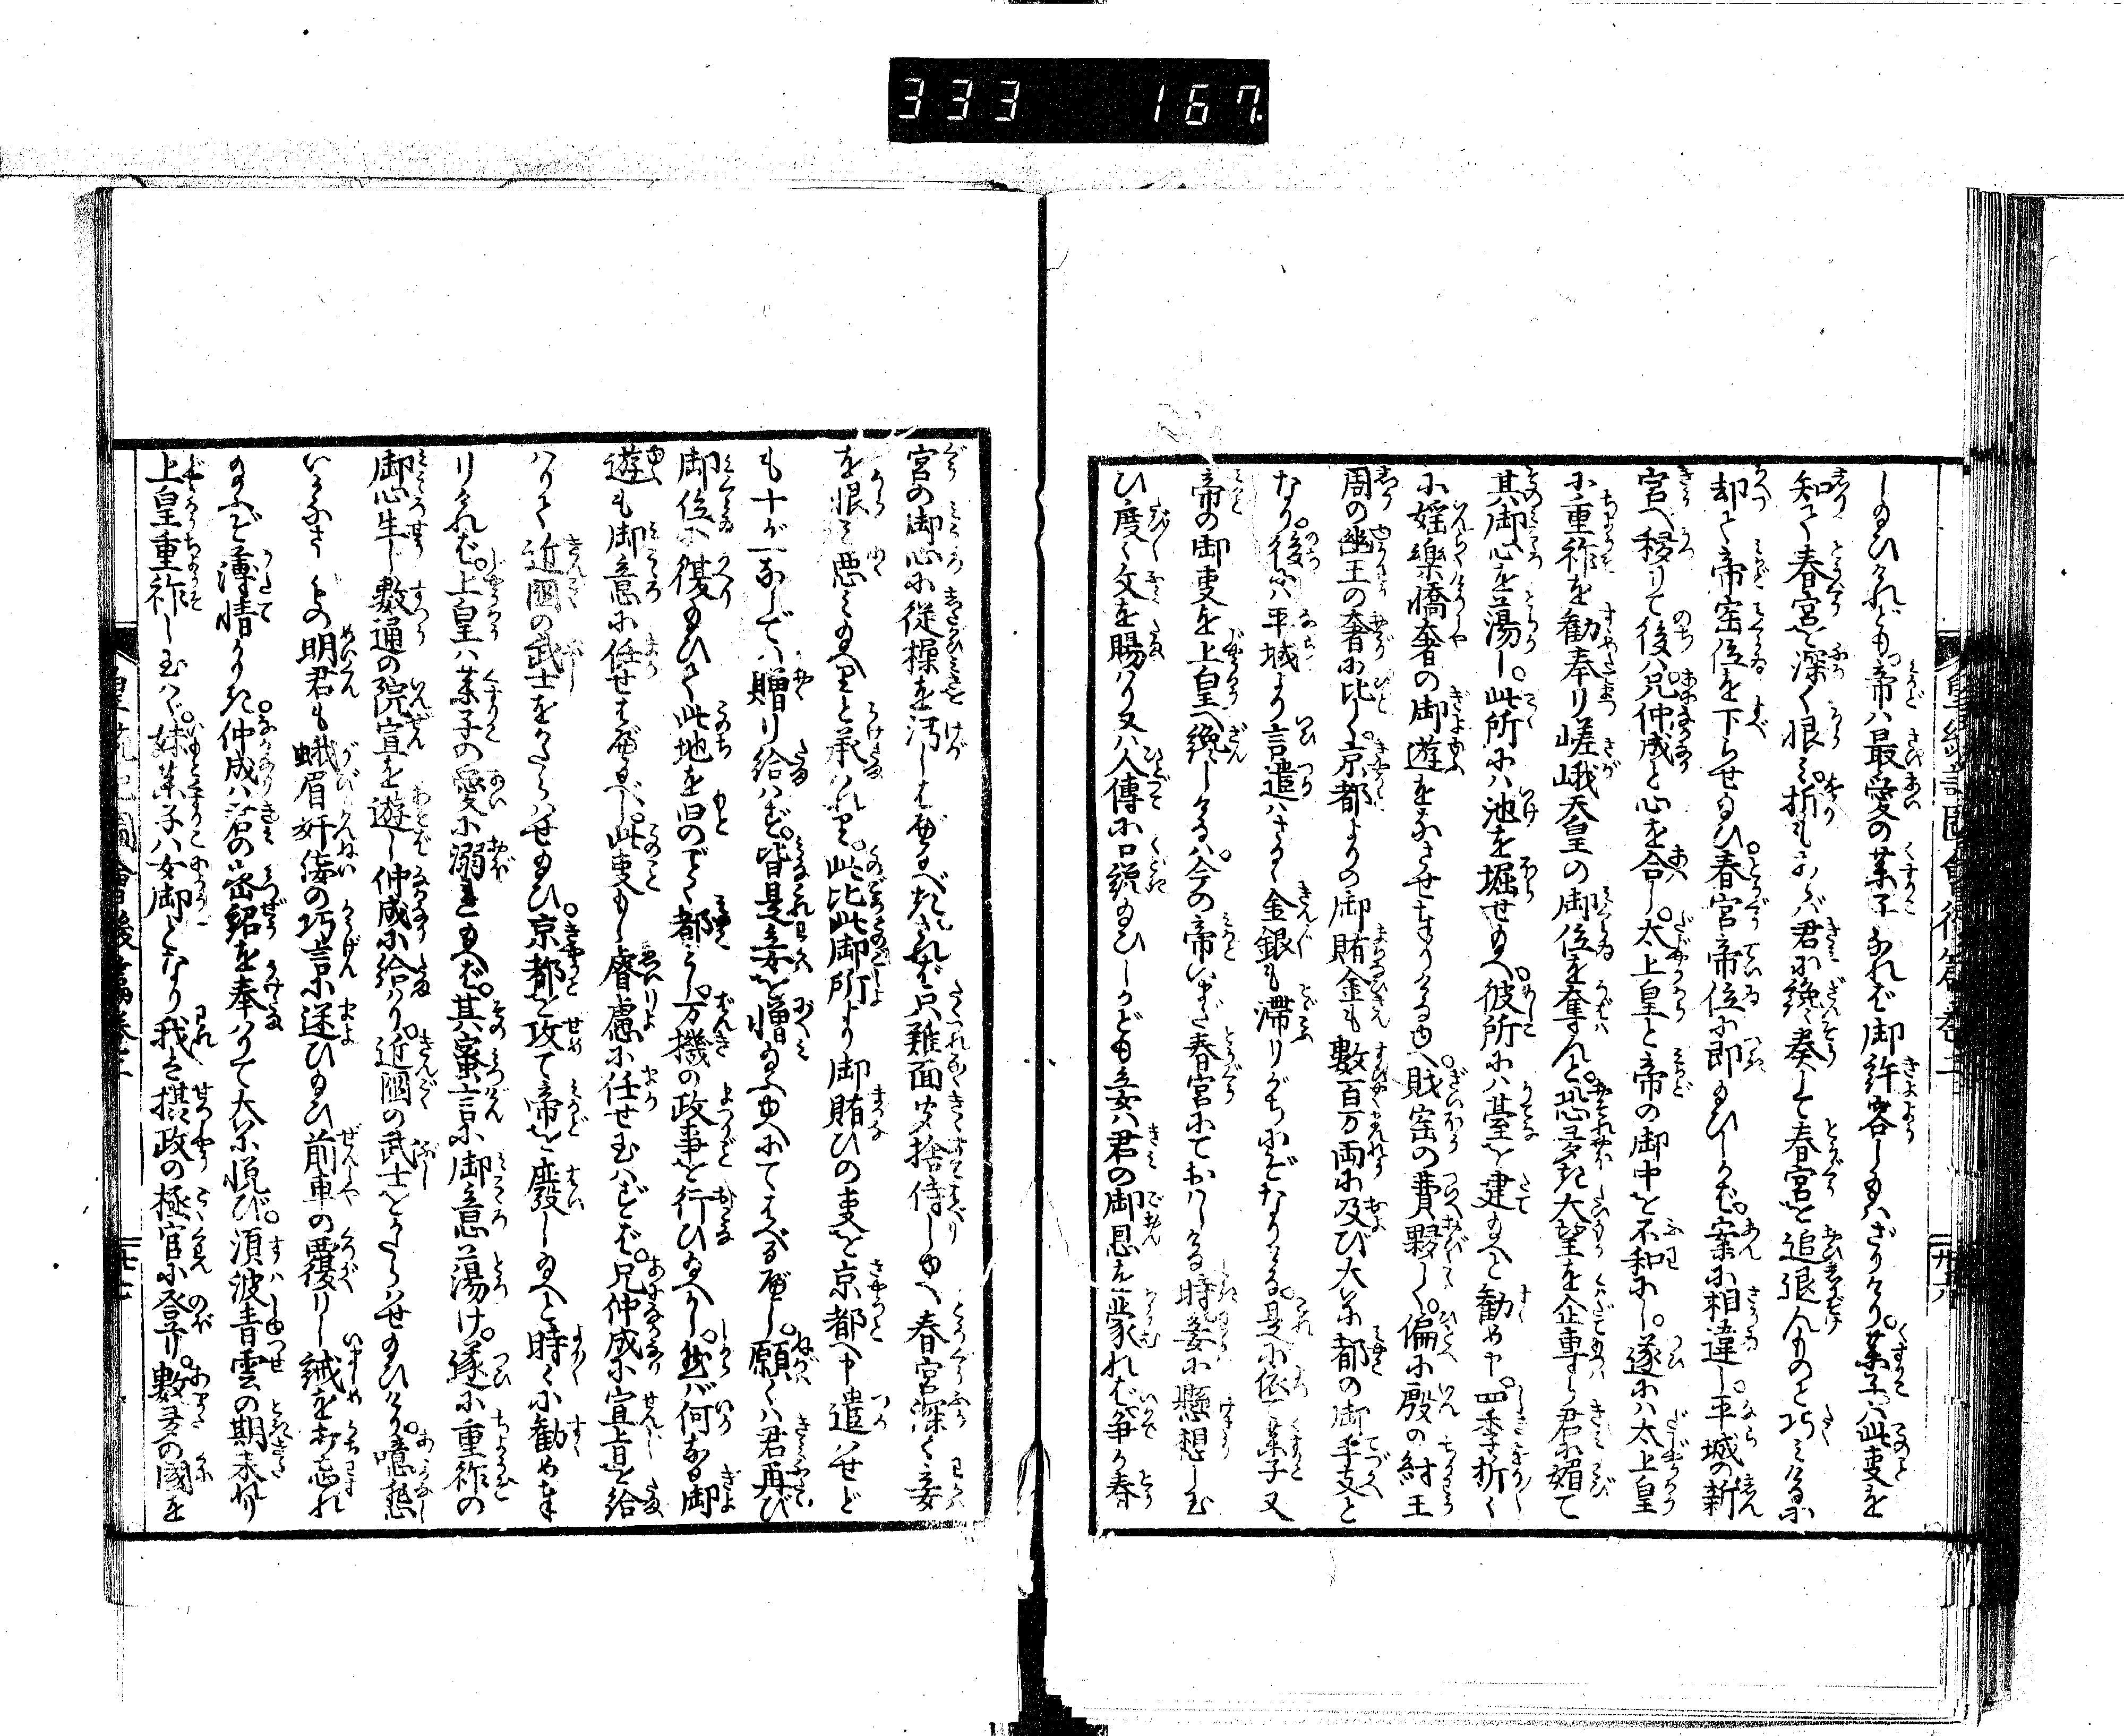 333 167
し給ひけれども帝ハ最愛の薬子なれバ御許容し給ハざりけり。薬子ハ此事を
知て春宮を深く恨ミ。折もあらバ君に纔奏して春宮を追退んものと巧ミけるに
却て帝宝位を下らせ給ひ。春宮帝位に即給ひしかバ。案に相違し。平城の新
宮へ移りて後ハ。兄仲成と心を合し。太上皇と帝の御中を不和にし。遂にハ太上皇
に重祚を勧奉り嵯峨天皇の御位を奪んと。恐多き大望を企専ら君に媚て
其御心を蕩し。此所にハ池を堀せ給へ。彼所にハ臺を建給へと勧め申。四季折〻
に婬樂驕奢の御遊をなさせ奉りける由へ。財宝の費夥しく。偏に殷の紂王
周の幽王の奢に比しく。京都よりの御賄金も數百万両に及び大に都の御手支と
なり。後ハ平城より言遣ハさるゝ金銀も滞りがちにぞなりける。是に依て薬子又
帝の御事を上皇へ纔しけるハ。今の帝いまだ春宮にておハしける時妾に懸想し玉
ひ度〻文を賜ハり又ハ人傳に口説給ひしかども妾ハ君の御恩を蒙れバ争か春
宮の御心に従ひ操を汚しはべるべきなれバ只難面聞捨侍しゆへ春宮深く妾
を恨ミ悪ミ給へりと承ハれり。此比此御所より御賄ひの事を京都へ申遣ハせど
も十が一ならでハ贈り給ハず。皆是妾を憎給ふゆへにてはべるべし。願くハ君再び
御位に復給ひて此地を旧のごとく都とし。万機の政事を行ひ給へかし。然バ何なる御
遊も御意に任せはべるべし。此事もし睿慮に任せ玉ハゞ。兄仲成に宣旨を給
ハりて近國の武士をかたらハせ給ひ。京都を攻て帝を廢し給へと時〻に勧め奉
りけれバ。上皇ハ薬子の愛に溺れ給へバ。其蜜言に御意蕩け。遂に重祚の
御心生じ數通の院宣を遊し仲成に給ハり。近國の武士をかたらハせ給ひけり。噫悲
いかなさしもの明君も蛾眉奸侫の巧言に迷ひ給ひ前車の覆りし誡をわすれ
給ふぞ薄情かりき。仲成ハ君の密詔を奉ハりて大に悦び。須波青雲の期来れり
上皇重祚し玉ハゞ。妹薬子ハ女御となり我ハ摂政の極官に登り。數多の國を